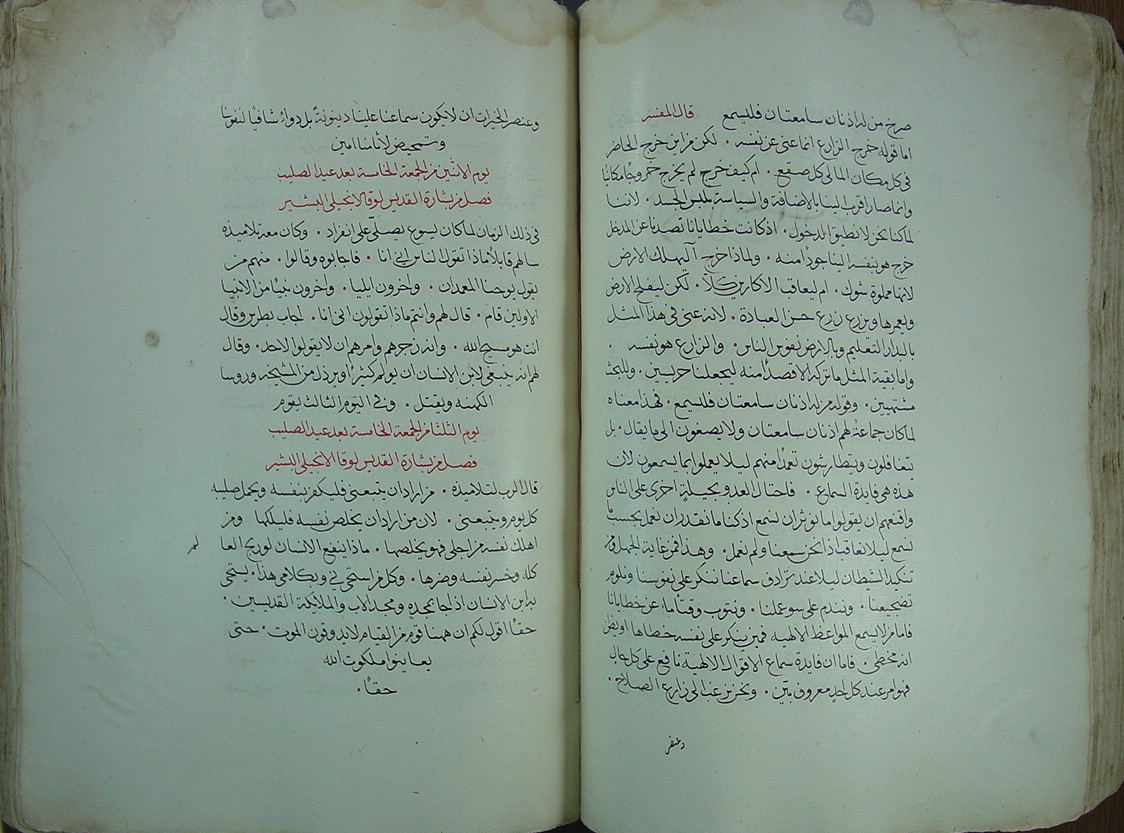 صرخ من له اذنان سامعتان فليسمع قال المفسر
اما قوله خرج الزارع انما عنى عن نفسه ٠ لكن من اين خرج الحاضر
في كل مكان المالى كل صقع ٠ ام كيف خرج لم يخرج خروجا مكانيًا
وانما صار اقرب الينا بالاضافة والسياسة بلبس الجسد ٠ لاننا
لما كنا نحن لا نطيق الدخول ٠ اذ كانت خطايانا تصدنا عن المدخل
خرج هو بنفسه الينا جودًا منه ٠ ولماذا خرج آليهلك الارض
لانها مملوة شوك ٠ ام ليعاقب الاكارين كلا ٠ لكن ليفلح الارض
ويعمرها ويزرع زرع حسن العبادة ٠ لانه عنى في هذا المثل
بالبذار التعليم وبالارض نفوس الناس ٠ والزارع هو نفسه ٠
واما بقية المثل ما تركه الا قصدًا منه ليجعلنا حريصين ٠ وللبحث
مشتهيين ٠ وقوله من له اذنان سامعتان فليسمع ٠ فهذا معناه
لما كان جماعة لهم اذنان سامعتان ولا يصغون الى ما يقال ٠ بل
يتغافلون ويتطارشون تعمدًا منهم ليلا يعملوا بما يسمعون لان
هذه هي فايدة السماع ٠ فاحتال العدو بحيلة اخرى على الناس
واقنعهم ان يقولوا ما نوثر ان نسمع اذ كنا ما نقدر ان نعمل بحسب ما
نسمع ليلا نعاقب اذا نحن سمعنا ولم نعمل ٠ وهذا فمن غاية الجهل ومن
تنكد الشيطان ليلا عند ترادف سماعنا ننكر على نفوسنا ونلوم
تضجيعنا ٠ ونندم على سو عملنا ٠ ونتوب وقتًا ما عن خطايانا
فاما من لا يسمع المواعظ الالهية فمتى ينكر على نفسه خطاها او يظن
انه مخطى ٠ فاما ان فايدة سماع الاقوال الالهية نافع على كل حال
فهو امر عند كل احد معروف بين ٠ ونحن نرغب الى زارع الصلاح ٠
وعنصر
وعنصر الخيرات ان لا يكون سماعنا علينا دينونة بل دواءً شافيًا لنفوسنا
وتمحيض لاثامنا امين
يوم الاثنين من الجمعة الخامسة بعد عيد الصليب
فصل من بشارة القديس لوقا الانجيلى البشير
في ذلك الزمان لما كان يسوع يصلى على انفراد ٠ وكان معه تلاميذه
سالهم قايلًا ماذا تقول الناس انى انا ٠ فاجابوه وقالوا ٠ منهم من
يقول يوحنا المعمدان ٠ واخرون ايليا ٠ واخرون نبيًا من الانبيا
الاولين قام ٠ قال لهم وانتم ماذا تقولون انى انا ٠ اجاب بطرس وقال
انت هو مسيح الله ٠ وانه زجرهم وامرهم ان لا يقولوا لاحد ٠ وقال
لهم انه ينبغى لابن الانسان ان يولم كثيرًا ويرذل من المشيخه وروسا
الكهنه ويقتل ٠ وفي اليوم الثالث يقوم
يوم الثلثا من الجمعة الخامسة بعد عيد الصليب
فصل من بشارة القديس لوقا الانجيلى البشير
قال الرب لتلاميذه ٠ من اراد ان يتبعنى فليكفر بنفسه ويحمل صليبه
كل يوم ويتبعنى ٠ لان من اراد ان يخلص نفسه فليهلكها ومن
اهلك نفسه من اجلى فهو يخلصها ٠ ماذا ينفع الانسان لو ربح العا لم
كله وخسر نفسه وضرها ٠ وكل من استحى بي وبكلامي هذا ٠ يستحى
به ابن الانسان اذا جا بمجده ومجد الاب والملايكة القديسين ٠
حقًا اقول لكم ان ههنا قوم من القيام لا يذوقون الموت ٠ حتى
يعاينوا ملكوت الله
حقًا ٠